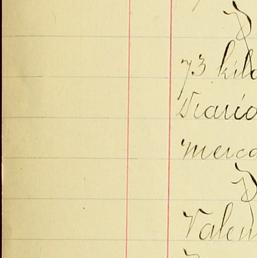 D
73 kilo
Diario
merca
D
Valen